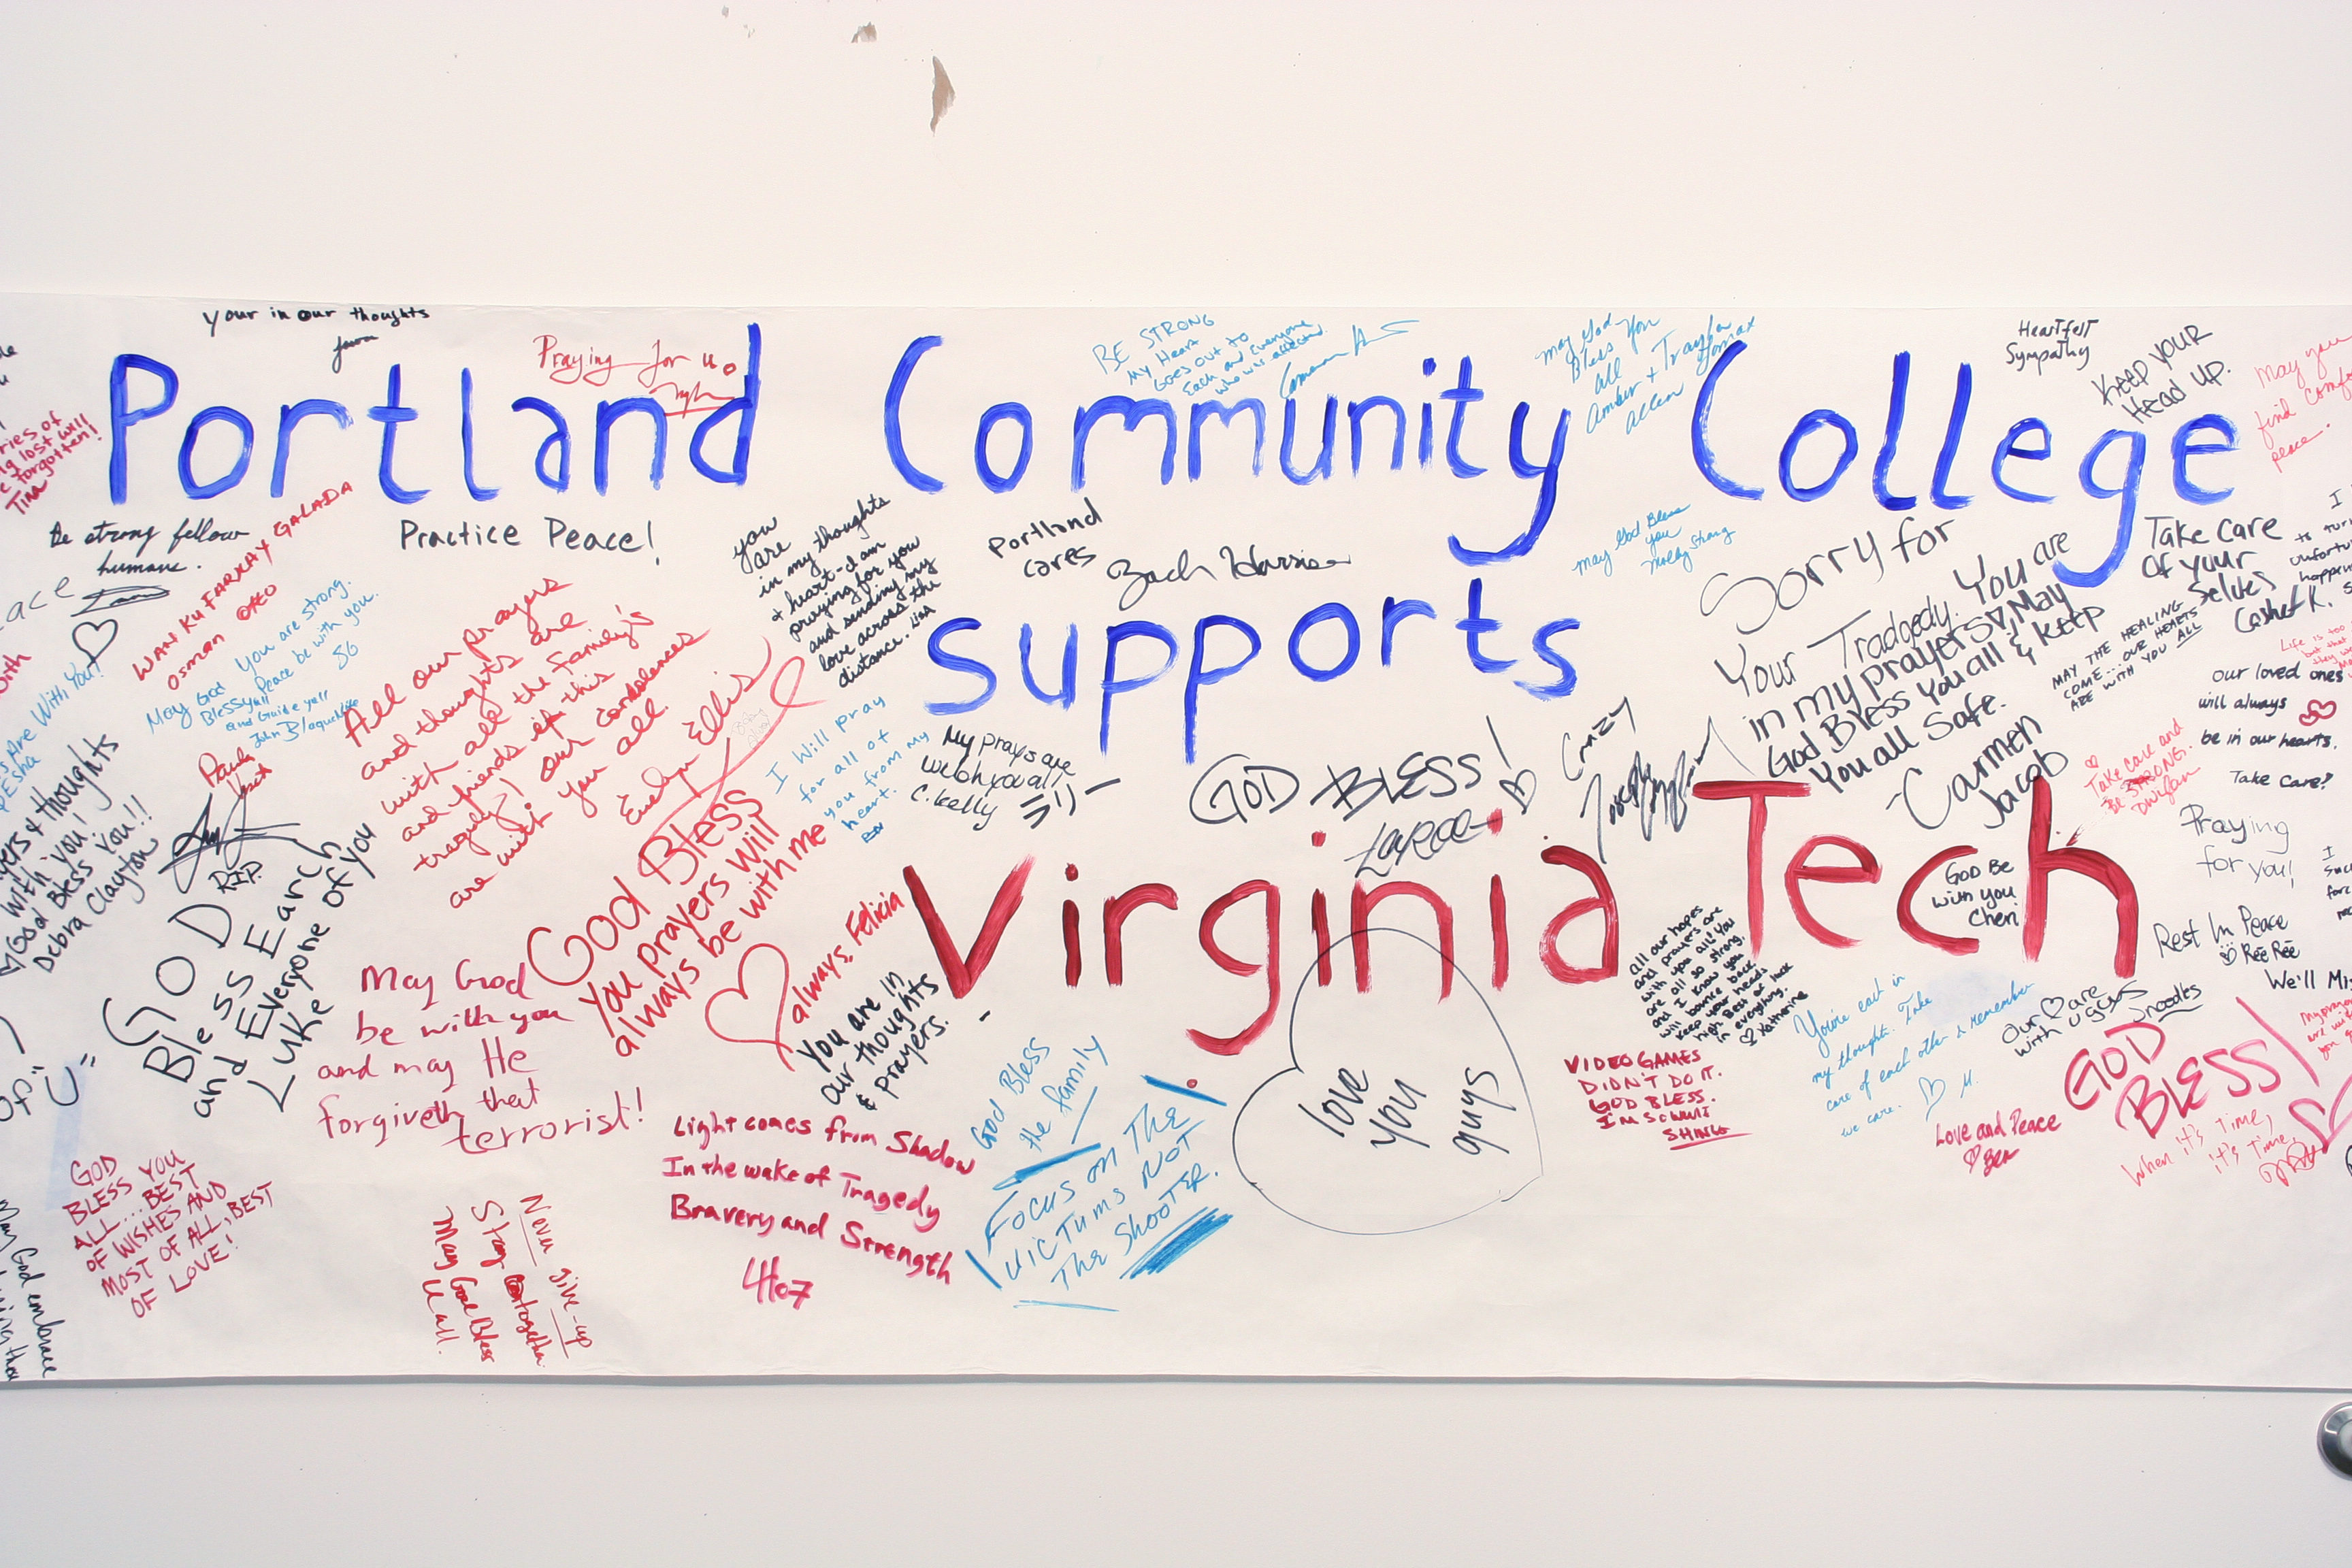 Portland Community College
supports
Virginia Tech
your in our thoughts
Praying for u.
BE STRONG
My Heart
Goes out to
Each and Everyone
who was affected.
May God
Bless You
All
Amber + Trayba
Allen
Heartfelt
Sympathy
Keep your
Head up.
May you
find comfo
peace.
ries of
lost will
forgotten!
Tina
Be strong fellow
humans.
Practice Peace!
WAAY KU FARXAY GALADA
Osman
you are
in my thoughts
+ heart - I am
praying for you
and sending my
love across the
distance. Lisa
Portland
cares
Zach Harrison
May God Bless
you
Molly Strong
Sorry for
Your Tradgedy. You are
in my prayers, May
God Bless You all & keep
You all Safe.
-Carmen
Jacob
Take care
of your
selves
Cashet K.
MAY THE HEALING
COME... OUR HEARTS
ARE WITH YOU ALL
our loved ones
will always
be in our hearts.
Take care?
eace
You are strong.
Peace be with you.
SG
May God
Bless yall
and Guide yall
John
All our prayers
and thoughts are
with all the family's
and friends of this
tragedy! our condolences
are with you all.
Evelyn Ellis
I will pray
for all of
you from my
heart.
My prays are
weth you all!
C. Kelly
GOD BLESS!
Crazy
Take care and
Be STRONG.
Praying
for you!
Are With You!
yers & thoughts
with you!
God Bless You!!
Debra Clayton
Paula
R.I.P.
GOD
Bless Each
and Everyone of you
Luke
God Bless
you prayers will
always be with me
always, Felicia
You are in
our thoughts
& prayers.
May God
be with you
and may He
forgiveth that
terrorist!
God Be
with you
Chen
Rest In Peace
Reë Reë
We'll Mis
all our hopes
and prayers are
with you all! You
are all so strong,
and I know you
will bounce back.
Keep your heads
high Best of luck
in everything.
Katherine
VIDEO GAMES
DIDN'T DO IT.
GOD BLESS.
You're each in
my thoughts. Take
care of each other & remember
we care. M.
Our ♡ are
with u guys
Snoodles
GOD
BLESS!
Love and Peace
Ben
When it's time,
it's time,
love
you
guys
God Bless
the family
Focus on the
victims not
the shooter.
Light comes from Shadow
In the wake of Tragedy
Bravery and Strength
GOD
BLESS YOU
ALL... BEST
OF WISHES AND
MOST OF ALL, BEST
OF LOVE!
Never give-up
Stay together
May God Bless
U all.
May God embrace